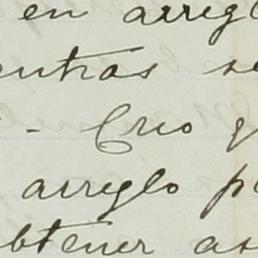 en arregl
entras se
- Creo q
arreglo p
btener as